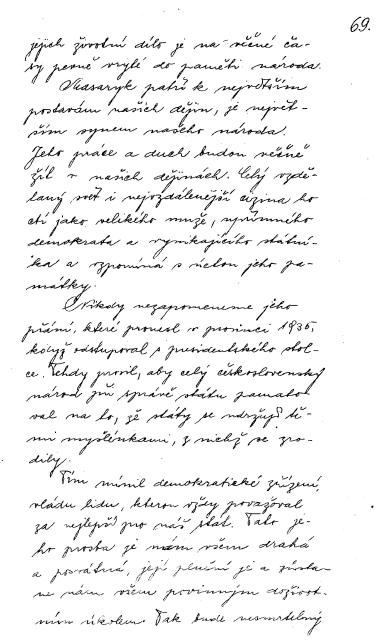 69.
jejich životní dílo je na věčné ča-
sy pevně vryté do paměti národa.
Masaryk patří k největším
postavám našich dějin, je největ-
ším synem našeho národa.
Jeho práce a duch budou věčně
žít v našich dějinách. Celý vzdě-
laný svět i nejvzdálenější cizina ho
ctí jako velikého muže, upřímného
demokrata a vynikajícího státní-
ka a vzpomíná s úctou jeho pa-
mátky.
Nikdy nezapomeneme jeho
přání, které pronesl v prosinci 1935,
když odstupoval s presidentského stol-
ce. Tehdy prosil, aby celý československý
národ při správě státu pamato-
val na to, že státy se udržují tě-
mi myšlénkami, z nichž se zro-
dily.
Tím mínil demokratické zřízení,
vládu lidu, kterou vždy považoval
za nejlepší pro náš stát. Tato je-
ho prosba je nám všem drahá
a posvátná, její plnění je a zůsta-
ne nám všem povinným doživot-
ním úkolem. Tak bude nesmrtelný